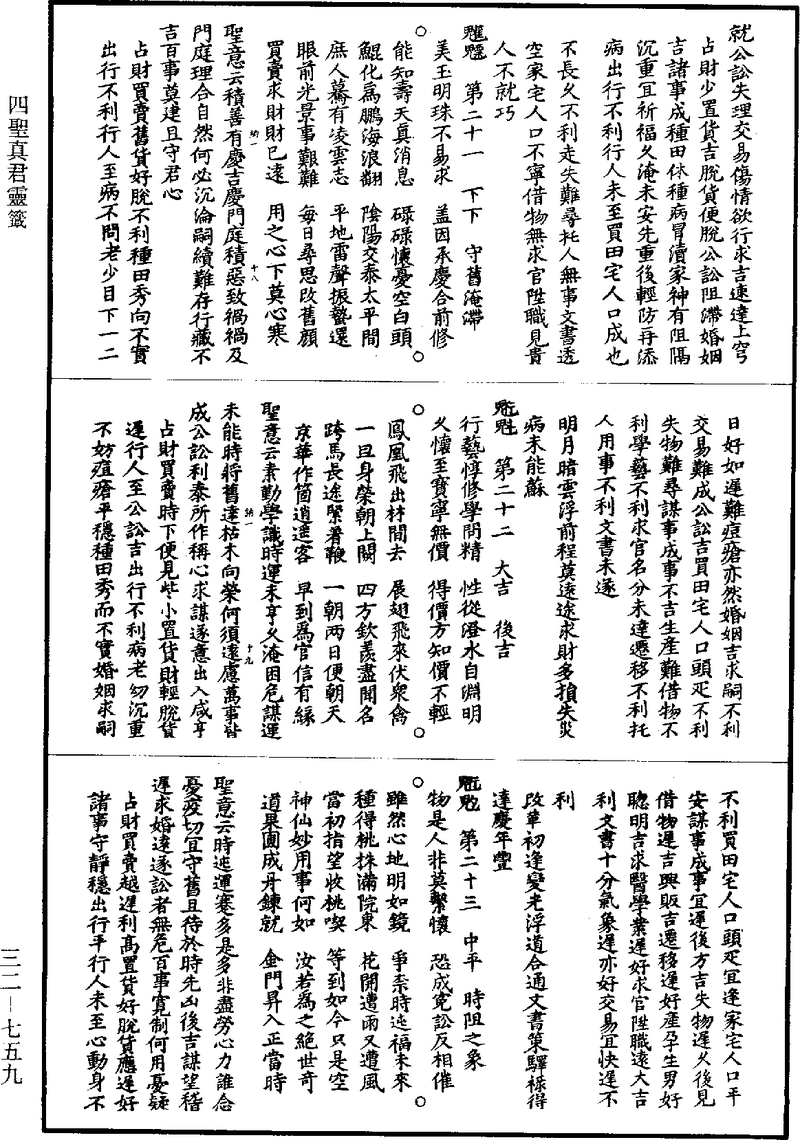 四聖真君靈籤
就公訟失理交易傷情欲行求吉速達上穹
占財少置貨吉脫貨便脫公訟阻滯婚姻
吉諸事成種田休種病冒瀆家神有阻隔
沉重宜祈福久淹未安先重後輕防再添
病出行不利行人未至買田宅人口成也
不長久不利走失難尋托人無事文書透
空家宅人口不寧借物無求官陞職見貴
人不就巧
第二十一　下下　守舊淹滯
美玉明珠不易求　蓋因承慶合前修
能知壽夭真消息　碌碌懷憂空白頭
鯤化為鵬海浪翻　陰陽交泰太平間
庶人驀有凌雲志　平地雷聲振蟄還
眼前光景事艱難　每日尋思改舊顏
買賣求財財已遠　用之心下莫心寒
聖意云積善有慶吉慶門庭積惡致禍禍及
門庭理合自然何必沉淪嗣續難存行藏不
吉百事莫建且守君心
占財買賣舊貨好脫不利種田秀向不實
出行不利行人至病不問老少目下一二
日好如遲難痘瘡亦然婚姻吉求嗣不利
交易難成公訟吉買田宅人口頭疋不利
失物難尋謀事成事不吉生產難借物不
利學藝不利求官名分未達遷移不利托
人用事不利文書未遂
明月暗雲浮前程莫遠途求財多損失災
病未能蘇
第二十二　大吉　後吉
行藝惇修學問精　性從澄水自淵明
久懷至寶寧無價　得價方知價不輕
鳳凰飛出林間去　展翅飛來伏眾禽
一旦身榮朝上闕　四方欽羨盡聞名
跨馬長途緊著鞭　一朝兩日便朝天
京華作箇逍遥客　早到為官信有緣
聖意云素勤學識時運未亨久淹困危謀運
未能時將舊達枯木向榮何須遠慮萬事皆
成公訟利泰所作稱心求謀遂意出入咸亨
占財買賣時下便見些小置貨財輕脫貨
遲行人至公訟吉出行不利病老幼沉重
不妨痘瘡平穩種田秀而不實婚姻求嗣
不利買田宅人口頭疋宜逢家宅人口平
安謀事成事宜遲後方吉失物遲久後見
借物遲吉興販吉遷移遲好產孕生男好
聰明吉求醫學業遲好求官陞職遠大吉
利文書十分氣象遲亦好交易宜快遲不
利
改革初逢變光浮道合通文書策驛祿得
達慶年豐
第二十三　中平　時阻之象
物是人非莫繫懷　恐成冤訟反相催
雖然心地明如鏡　爭柰時迍福未來
種得桃株滿院東　花開遭雨又遭風
當初指望收桃喫　等到如今只是空
神仙妙用事何如　汝若為之絕世奇
道果圓成丹鍊就　金門昇入正當時
聖意云時迍運蹇多是多非盡勞心力誰念
憂疑切宜守舊且待於時先凶後吉謀望稽
遲求婚達遂訟者無危百事寬制何用憂疑
占財買賣越遲利高置貨好脫貨應遲好
諸事守靜穩出行平行人未至心動身不
三二－七五九